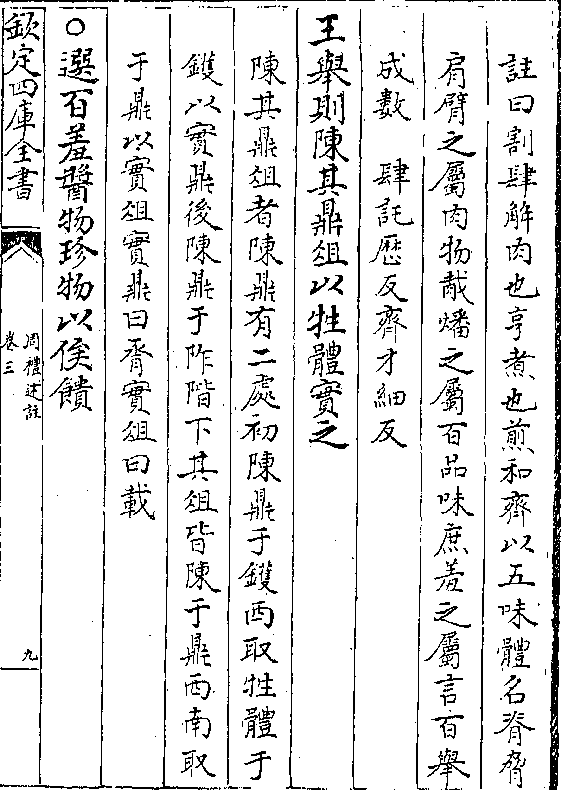 註曰割肆解肉也亨煮也煎和齊以五味體名脊脅
肩臂之屬肉物胾燔之屬百品味庶羞之屬言百舉
成數　肆託歷反齊才細反
王舉則陳其鼎俎以牲體實之
陳其鼎俎者陳鼎有二處初陳鼎于鑊西取牲體于
鑊以實鼎後陳鼎于阼階下其俎皆陳于鼎西南取
于鼎以實俎實鼎曰脀實俎曰載
○選百羞醬物珍物以俟饋
欽定四庫全書
周禮述註
卷三
九